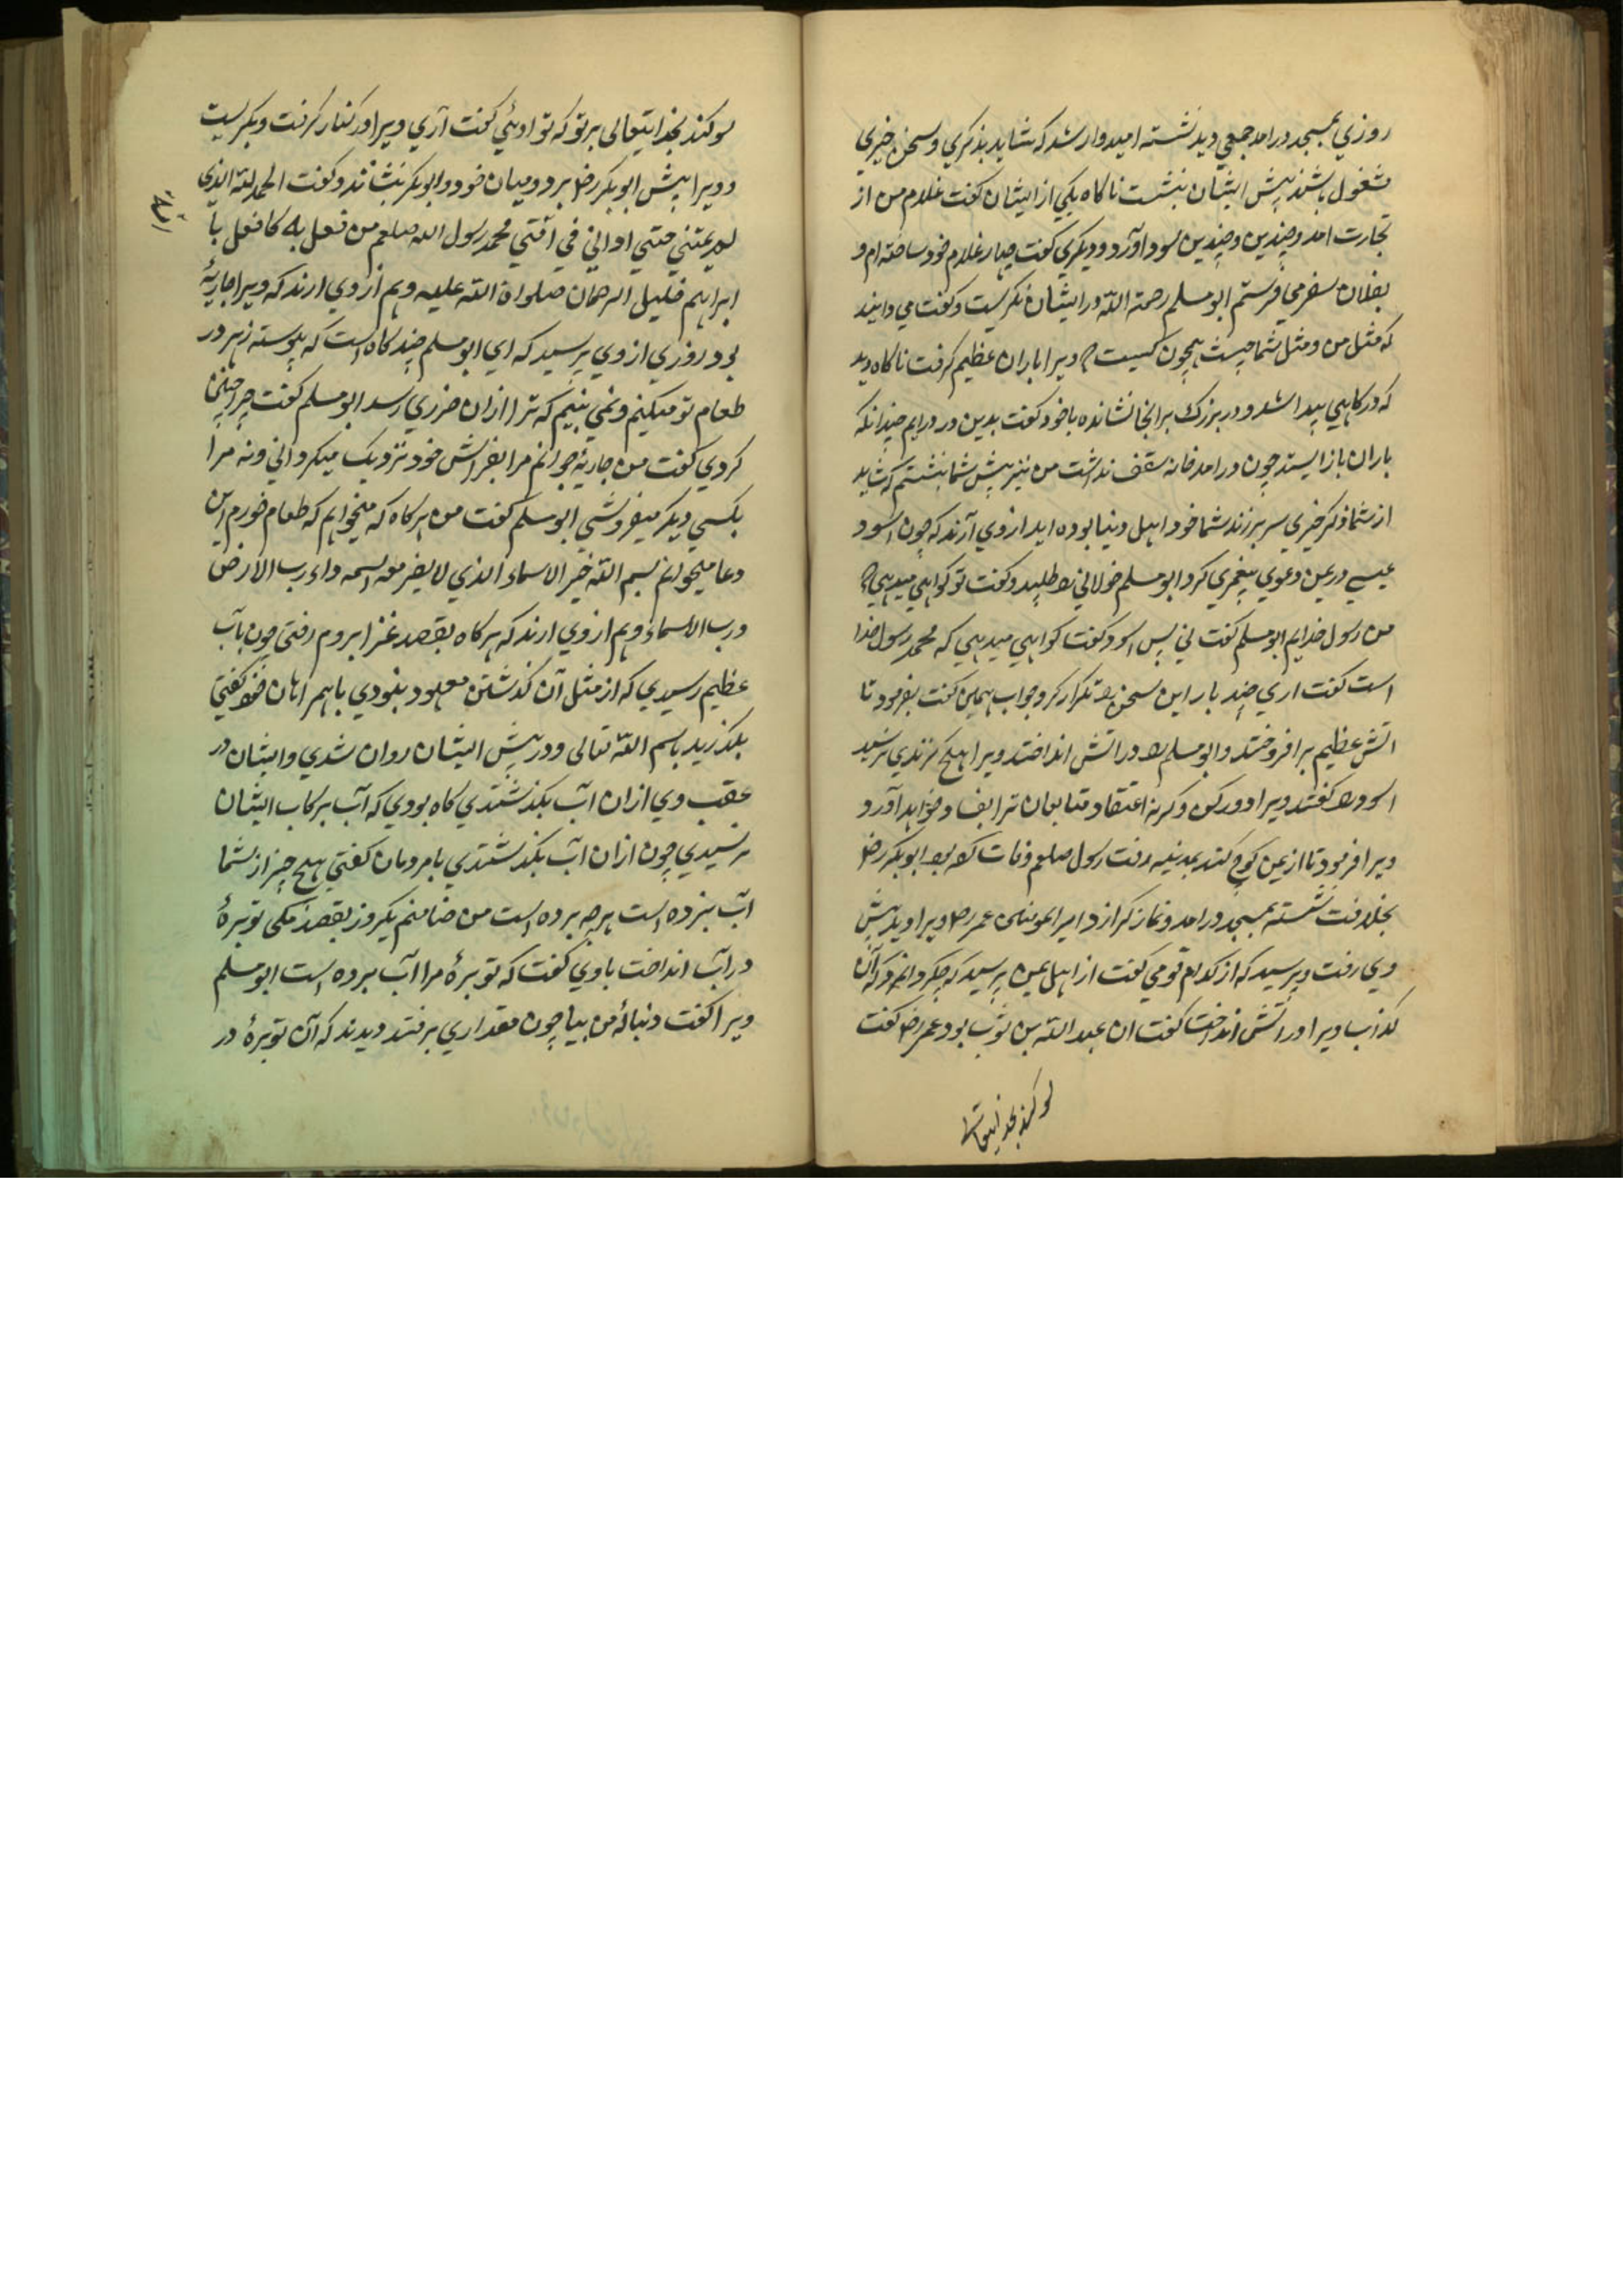 روزي بمسجد درامد جمعي ديد نشسته اميدوار شد كه شايد بذكري و سخن خيري
مشغول باشند پيش ايشان بنشست ناكاه يكي از ايشان كفت غلام من از
تجارت امد و چندين و چندين سود اورد و ديكري كفت جهاز غلام خود ساخته ام و
بفلان سفر مي فرستم ابو مسلم رحمة الله در ايشان نكريست و كفت مي دانيد
كه مثل من و مثل شما چيست همچون كسيست كه ويرا باران عظيم كرفت ناكاه ديد
كه دركاهي پيدا شد و در بزرك بر انجا نشانده با خود كفت بدين در درايم چندانكه
باران باز ايستد چون درامد خانه سقف نداشت من نيز پيش شما بنشستم كه شايد
از شما ذكر خيري سر برزند شما خود اهل دنيا بوده ايد از وي آرند كه چون اسود
عيسي در يمن دعوي پيغمبري كرد ابو مسلم خولاني را طلبيد و كفت تو كواهي ميدهي كه
من رسول خدايم ابو مسلم كفت ني پس اسود كفت كواهي ميدهي كه محمد رسول خدا
است كفت اري چند بار اين سخن را تكرار كرد جواب همين كفت بفرمود تا
اتش عظيم برافروختند و ابو مسلم را در اتش انداختند ويرا هيچ كزندي نرسيد
اسود را كفتند ويرا دور كن وكرنه اعتقاد متابعان ترا بفساد خواهد آورد
ويرا فرمود تا از يمن كوچ كند بمدينه رفت رسول صلعم وفات كرده بود ابوبكر رض
بخلافت نشسته بمسجد درامد و نماز كزارد امير المومنين عمر رض ويرا ديد پيش
وي رفت و پرسيد كه از كدام قومي كفت از اهل يمن پرسيد كه چه كرد انمرد كه آن
كذاب ويرا در اتش انداخت كفت ان عبد الله بن ثوب بود عمر رض كفت
سوكند بخدايتعالى
سوكند بخدايتعالى بر تو كه تو اوئي كفت آري ويرا در كنار كرفت و بكريست
و ويرا پيش ابوبكر رض برد و ميان خود و ابوبكر بنشاند و كفت الحمد لله الذي
لم يمتني حتي اراني في امتي محمد رسول الله صلعم من فعل به كما فعل با
ابراهيم خليل الرحمان صلواة الله عليه و هم از وي ارند كه ويرا جاريۀ
بود روزي از وي پرسيد كه اي ابو مسلم چند كاه است كه پيوسته زهر در
طعام تو ميكنم و نمي بينم كه ترا ازان ضرري رسد ابو مسلم كفت چرا چنين
كردي كفت من جاريۀ جوانم مرا بفراش خود نزديك ميكرداني و نه مرا
بكسي ديكر ميفروشي ابو مسلم كفت من هر كاه كه ميخواهم كه طعام خورم اين
دعا ميخوانم بسم الله خير الاسماء الذي لا يضر مع اسمه داء رب الارض
و رب السماء و هم از وي ارند كه هر كاه بقصد غزا بروم رفتي چون بآب
عظيم رسيدي كه از مثل آن كذشتن معهود نبودي با همراهان خود كفتي
بكذريد باسم الله تعالى و در پيش ايشان روان شدي و ايشان در
عقب وي ازان اب بكذشتندي كاه بودي كه آب بركاب ايشان
نرسيدي چون ازان اب بكذشتندي با مردمان كفتي هيچ چيز از شما
اب ببرده است هر چه برده است من ضامنم يكروز بقصد يكي توبرۀ
در آب انداخت با وي كفت كه توبرۀ مرا اب برده است ابو مسلم
ويرا كفت دنبالۀ من بيا چون مقداري برفتند ديدند كه آن توبرۀ در